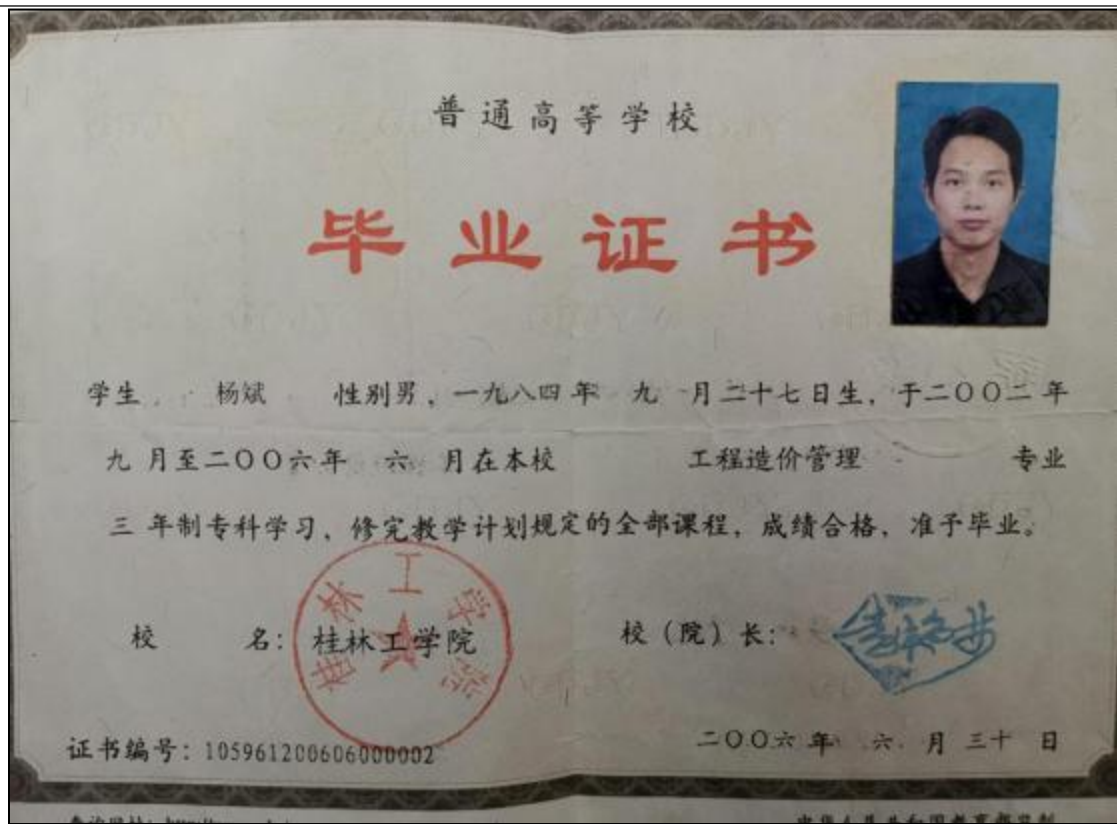 普通高等学校
毕业证书
学生 杨斌 性别男，一九八四年 九 月二十七日生，于二〇〇二年
九 月至二〇〇六年 六 月在本校 工程造价管理 专业
三 年制专科学习，修完教学计划规定的全部课程，成绩合格，准予毕业。
校 名：桂林工学院 校（院）长：
桂林工学院
证书编号：105961200606000002
二〇〇六年 六 月 三十 日